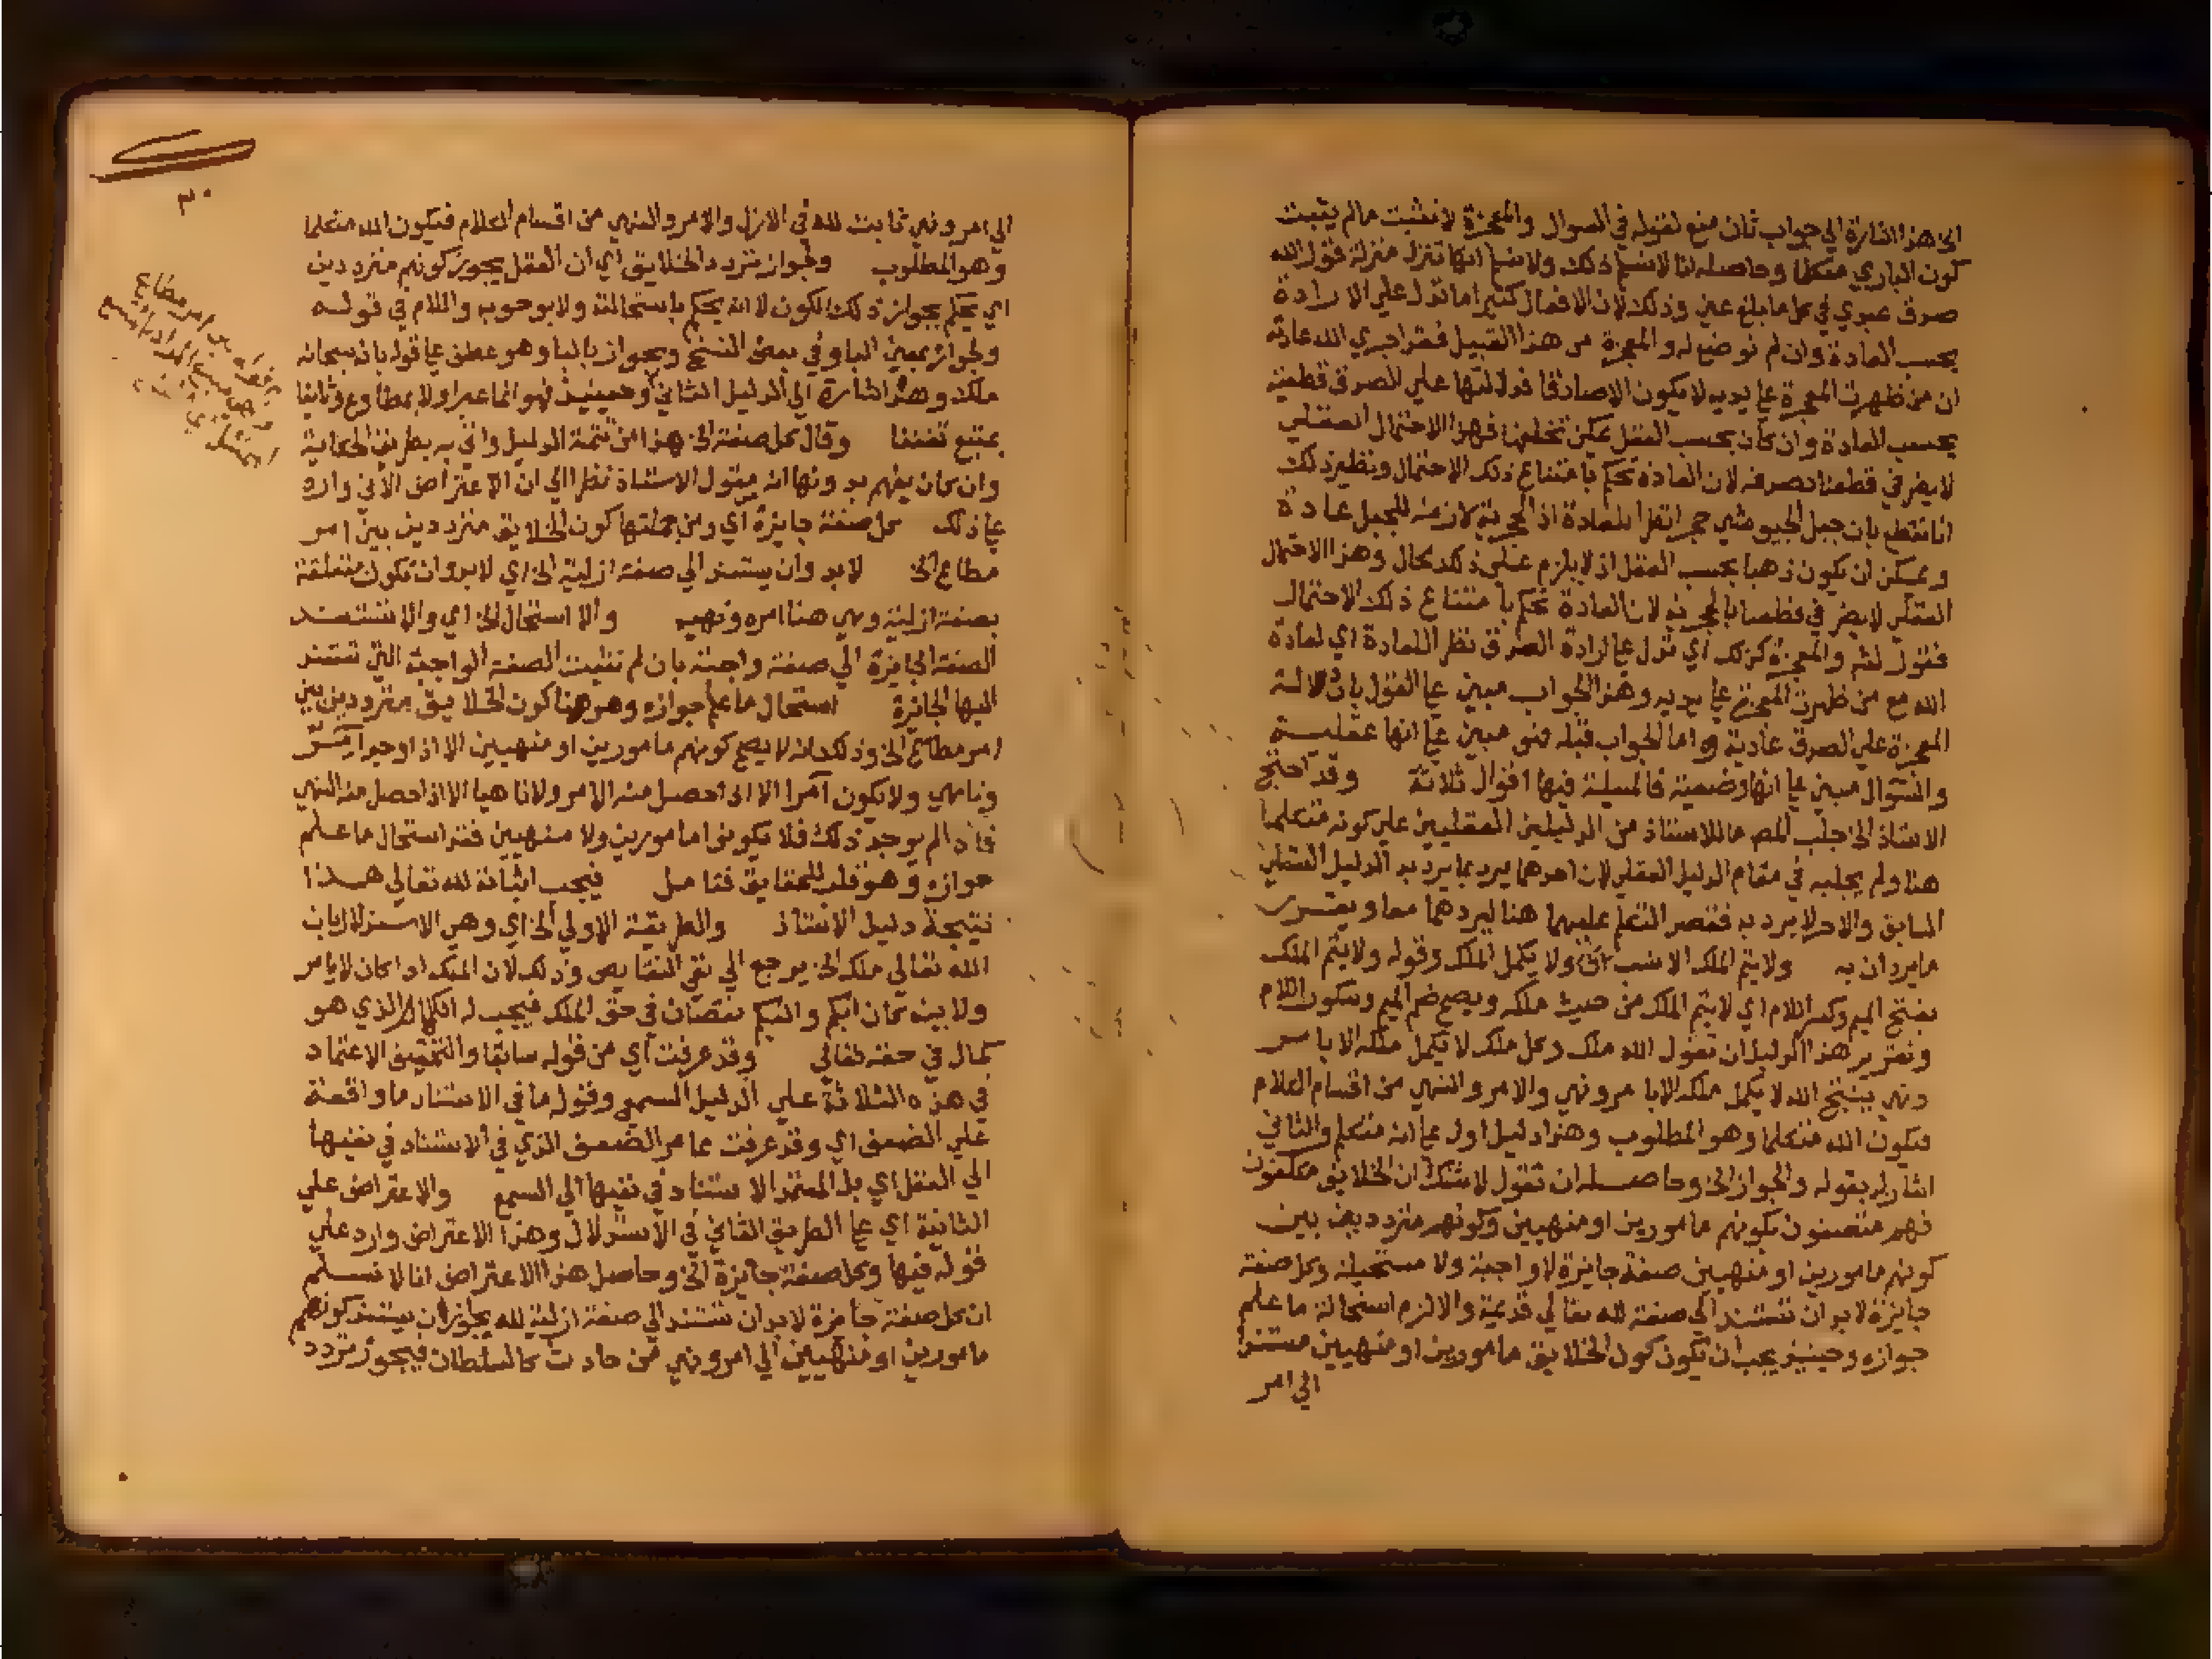 الخ هذا اشارة الي جواب ثان منع لقوله في السوال والمعجزة لا تثبت مالم يثبت
كون الباري متكلما وحاصله انا لا نسلم ذلك ولا نسلم انها تنزل منزلة قول الله
صدق عبدي في كل ما بلغ عني وذلك لان الافعال كثيرا ما تدل علي الارادة
بحسب العادة وان لم توضع له والمعجزة من هذا القبيل فقد اجري الله عادته
ان من ظهرت المعجزة علي يديه لا يكون الا صادقا فدلالتها علي الصدق قطعية
بحسب العادة وان كان بحسب العقل يمكن تخلفها فهذا الاحتمال العقلي
لا يضر في قطعنا بصدقه لان العادة تحكم بامتناع ذلك الاحتمال ونظير ذلك
انا نقطع بان جبل الجيوشي حجر انظر اللعادة اذ الحجرية لازمة للجبل عادة
ويمكن ان يكون ذهبا بحسب العقل اذ لا يلزم علي ذلك محال وهذا الاحتمال
العقلي لا يضر في قطعنا بالحجرية لان العادة تحكم بامتناع ذلك الاحتمال
فقوله والمعجزة كذلك اي تدل علي ارادة الصدق نظر اللعادة اي لعادة
الله مع من ظهرت المعجزة علي يديه وهذا الجواب مبني علي القول بان دلالة
المعجزة علي الصدق عادية واما الجواب قبله فهو مبني علي انها عقلية
والسوال مبني علي انها وضعية فالمسيلة فيها اقوال ثلاثة وقد احتج
الاستاذ الخ جلب المصـ ما للاستاذ من الدليلين العقليين علي كونه متكلما
هنا ولم يجلبه في مقام الدليل العقلي لان احدهما يرد بما يرد به الدليل العقلي
السابق والاخر لا يرد به فقصر التكلم عليهما هنا ليردهما معا ويقرر
ما يردان به ولا يتم الملك الا ولا يكمل الملك وقوله ولا يتم الملك
بفتح الميم وكسر اللام اي لا يتم الملك من حيث ملكه ويصح ضم الميم وسكون اللام
وتقرير هذا الدليل ان تقول الله ملك وكل ملك لا يكمل ملكه الا بامر
ونهي ينتج الله لا يكمل ملكه الا بامر ونهي والامر والنهي من اقسام الكلام
فيكون الله متكلما وهو المطلوب وهذا دليل اول علي انه متكلم والثاني
اشار له بقوله والجواز الخ وحاصله ان تقول لا شك ان الخلايق مكلفون
فهم متصفون بكونهم مامورين او منهيين وكونهم مترددين بين
كونهم مامورين او منهيين صفة جايزة لا واجبة ولا مستحيلة وكل صفة
جايزة لابد ان تستند الي صفة لله تعالي قديمة والا لزم استحالة ما علم
جوازه وحينيذ يجب ان يكون كون الخلايق مامورين او منهيين مستندا
الي امر
٣٠
الي امر ونهي ثابت لله في الازل والامر والنهي من اقسام الكلام فيكون الله متكلما
وهو المطلوب ولجواز تردد الخلايق اي ان العقل يجوز كونهم مترددين
اي يحكم بجواز ذلك لكون لا انه يحكم باستحالته ولا بوجوبه واللام في قوله
ولجواز بمعني الباء وفي بعض النسخ وبجواز بالباء وهو عطف علي قوله بانه سبحانه
ملك وهذا اشارة الي الدليل الثاني وحينيذ فهو انما عبر اولا بمطاوع وثانيا
بمتبع تفننا وقال كل صفة الخ هذا من تتمة الدليل واتي به بطريق الحكاية
وان كان يفهم بدونها انه مقول الاستاذ نظرا الي ان الاعتراض الاتي وارد
علي ذلك كل صفة جايزة اي ومن جملتها كون الخلايق مترددين بين امر
مطاع الخ لابد وان يستند الي صفة ازلية الخ اي لابد وان تكون متعلقة
بصفة ازلية وهي هنا امره ونهيه والا استحال الخ اي والا تستند
الصفة الجايزة الي صفة واجبة بان لم تثبت الصفة الواجبة التي تستند
اليها الجائزة استحال ما علم جوازه وهو هنا كون الخلايق مترددين بين
امر مطاع الخ وذلك انه لا يصح كونهم مامورين او منهيين الا اذا وجد آمر
وناهي ولا يكون آمرا الا اذا حصل منه الامر ولا ناهيا الا اذا حصل منه النهي
فاذا لم يوجد ذلك فلا يكونوا مامورين ولا منهيين فقد استحال ما علم
جوازه وهو قلب للحقايق فتامل فيجب اثباته لله تعالي هذا
نتيجة دليل الاستاذ والطريقة الاولي الخ اي وهي الاستدلال بان
الله تعالي ملك الخ يرجع الي نفي النقايص وذلك لان الملك اذا كان لا يامر
ولا ينهي كان ابكم والبكم نقصان في حق الملك فيجب له الكلام الذي هو
كمال في حقه تعالي وقد عرفت اي من قوله سابقا والتحقيق الاعتماد
في هذه الثلاثة علي الدليل السمعي وقوله ما في الاستناد ما واقعة
علي الضعف اي وقد عرفت مما مر الضعف الذي في الاستناد في نفيها
الي العقل اي بل المعتمد الاستناد في نفيها الي السمع والاعتراض علي
الثانية اي علي الطريق الثاني في الاستدلال وهذا الاعتراض وارد علي
قوله فيها وكل صفة جايزة الخ وحاصل هذا الاعتراض انا لا نسلم
ان كل صفة جايزة لابد ان تستند الي صفة ازلية لله بجواز ان يستند كونهم
مامورين او منهيين الي امر ونهي من حادث كالسلطان فيجوز تردد